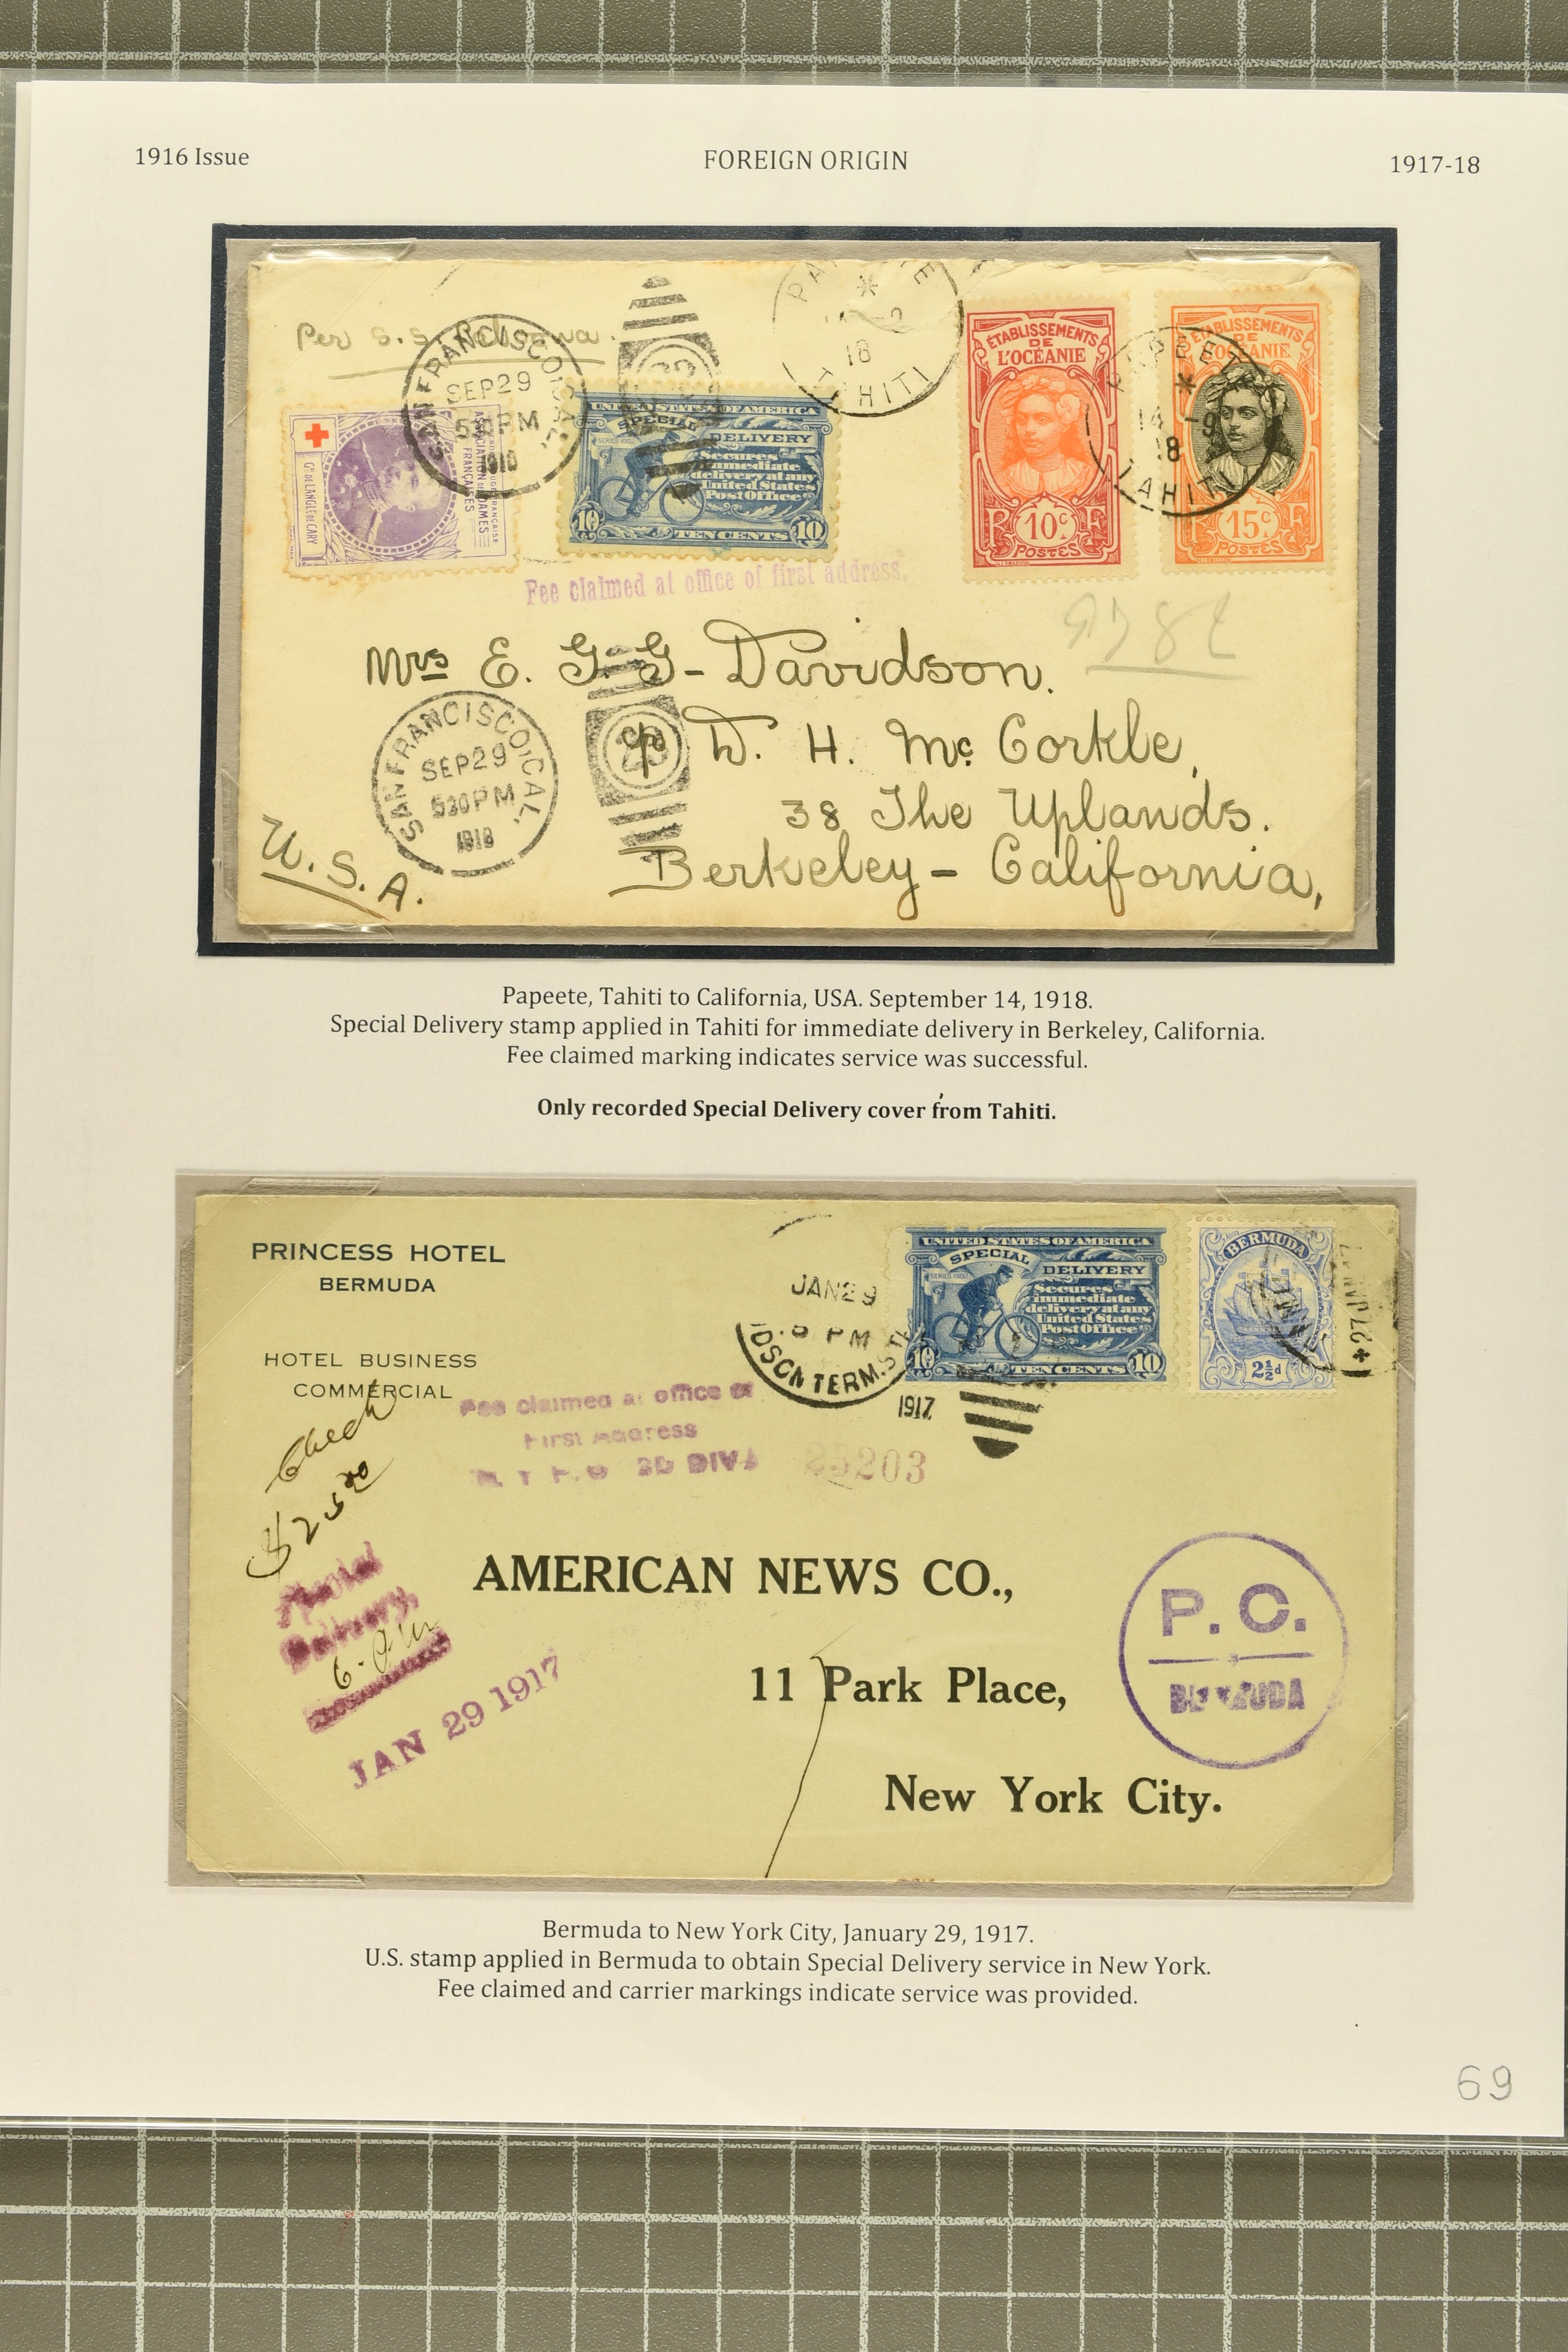 1916 Issue
FOREIGN ORIGIN
1917-18
Per S.S.
SAN FRANCISCO, CAL.
SEP 29
530 PM
1918
TAHITI
18
Gal DE LANGLE DE CARY
ASSOCIATION DES DAMES
FRANÇAISES
UNITED STATES OF AMERICA
SPECIAL DELIVERY
SERIES 1902
Secures
immediate
delivery at any
United States
Post Office
10 TEN CENTS 10
ÉTABLISSEMENTS
DE
L'OCÉANIE
R 10c F
POSTES
ÉTABLISSEMENTS
DE
L'OCÉANIE
R 15c F
POSTES
PAPEETE
14 -9
18
TAHITI
Fee claimed at office of first address.
Mrs E. G. G- Davidson.
c/o D. H. Mc Corkle,
38 The Uplands.
Berkeley - California,
U.S.A.
SAN FRANCISCO, CAL.
SEP 29
530 PM
1918
Papeete, Tahiti to California, USA. September 14, 1918.
Special Delivery stamp applied in Tahiti for immediate delivery in Berkeley, California.
Fee claimed marking indicates service was successful.
Only recorded Special Delivery cover from Tahiti.
PRINCESS HOTEL
BERMUDA
HOTEL BUSINESS
COMMERCIAL
JAN 29
PM
TERM. STA
1917
UNITED STATES OF AMERICA
SPECIAL DELIVERY
SERIES 1902
Secures
immediate
delivery at any
United States
Post Office
10 TEN CENTS 10
BERMUDA
2½d
27 JAN 17
Check
$25.00
Fee claimed at office of
First Address
25203
Special
Delivery,
JAN 29 1917
AMERICAN NEWS CO.,
11 Park Place,
New York City.
P. C.
BERMUDA
Bermuda to New York City, January 29, 1917.
U.S. stamp applied in Bermuda to obtain Special Delivery service in New York.
Fee claimed and carrier markings indicate service was provided.
69